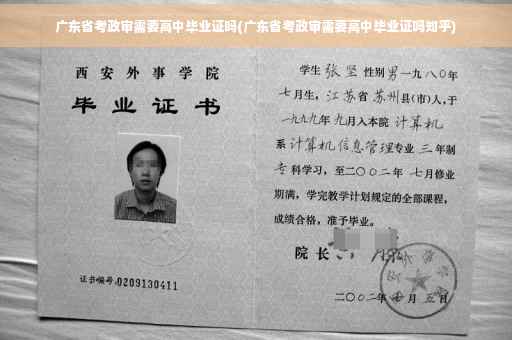 广东省考政审需要高中毕业证吗(广东省考政审需要高中毕业证吗知乎)
西安外事学院
毕业证书
证书编号:0209130411
学生 张坚 性别 男 一九八〇年
七月生，江苏省 苏州县(市)人，于
一九九九年 九月入本院 计算机
系 计算机信息管理专业 三 年制
专科学习，至二〇〇二年 七月修业
期满，学完教学计划规定的全部课程，
成绩合格，准予毕业。
院长
二〇〇二年 七月 五日